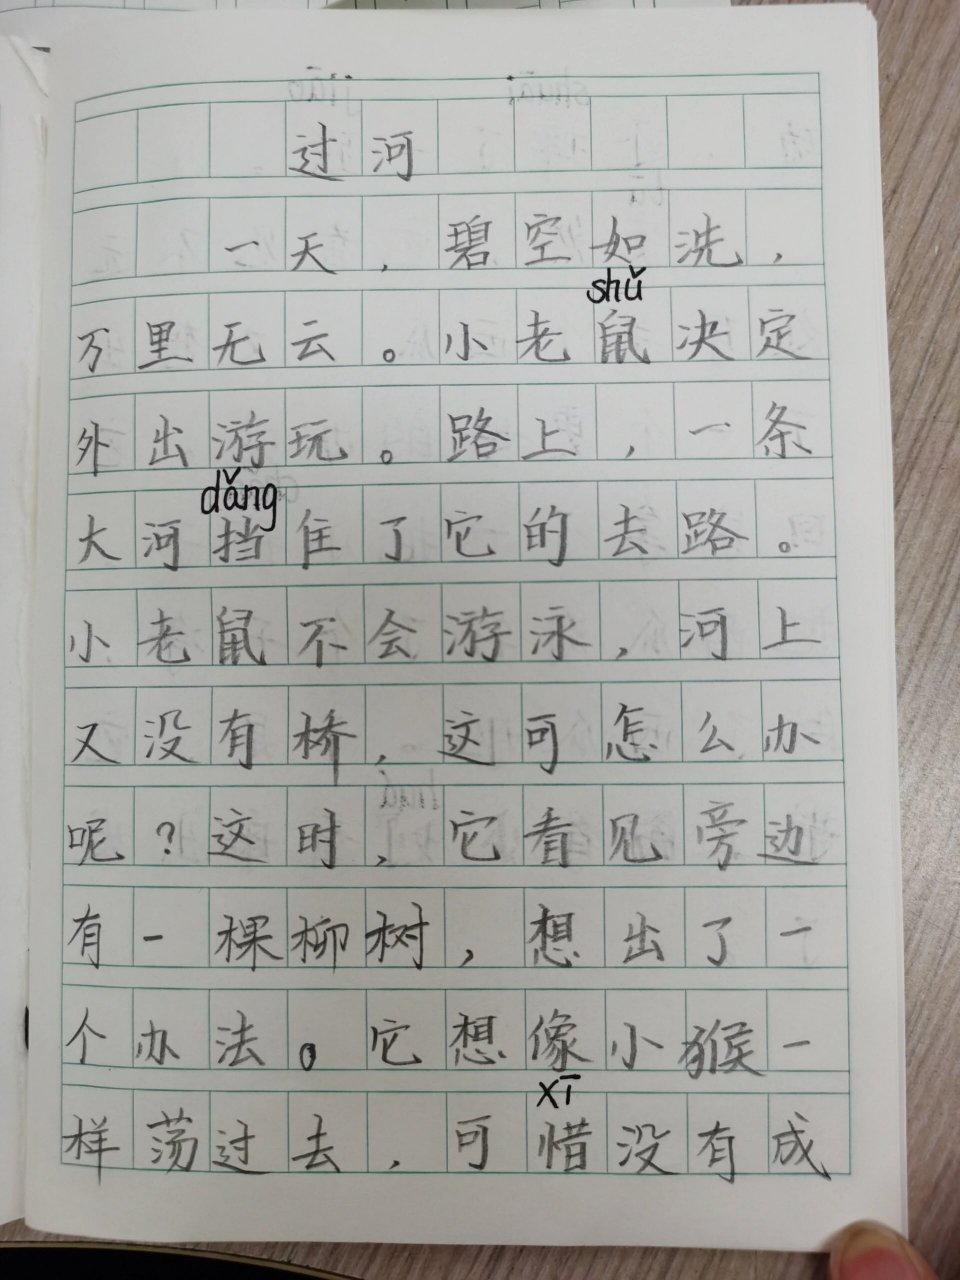 过河
一天，碧空如洗，
shǔ
万里无云。小老鼠决定
外出游玩。路上，一条
dǎng
大河挡住了它的去路。
小老鼠不会游泳，河上
又没有桥，这可怎么办
呢？这时，它看见旁边
有一棵柳树，想出了一
个办法。它想像小猴一
xī
样荡过去，可惜没有成